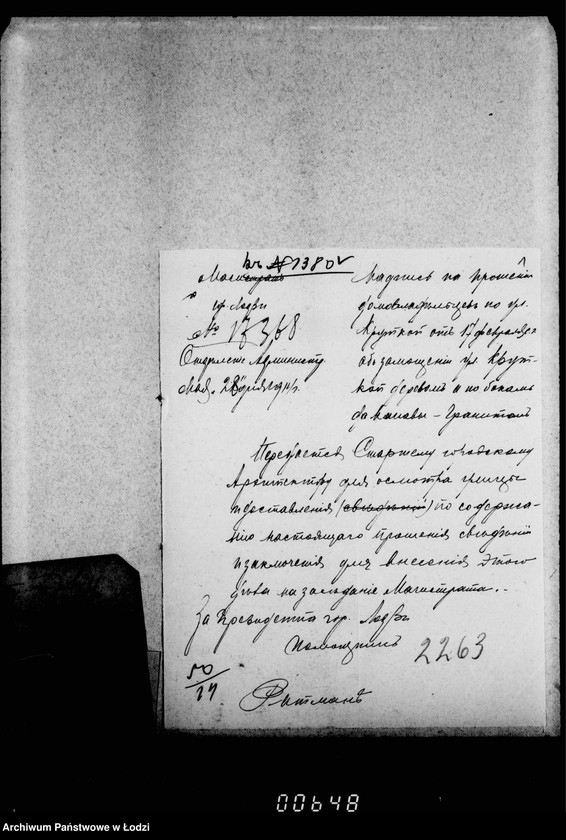 къ № 1380
Магистратъ
гор. Лодзи
№ 17368
Отдѣленіе Администр
Надпись на прошеніи
домовладѣльцевъ по ул.
Круткой отъ 17 февраля
объ замощеніи ул. Крут-
кой деревомъ а по бокамъ
Гранитомъ
Передается Старшему городскому
Архитектору для осмотра улицы
представленія (свѣдѣній) по содержа-
нію настоящаго прошенія свѣдѣній
и заключенія для внесенія этого
дѣла на засѣданіе Магистрата.
За Президента гор. Лодзи
Помощникъ
2263
50/14
00648
Archiwum Państwowe w Łodzi